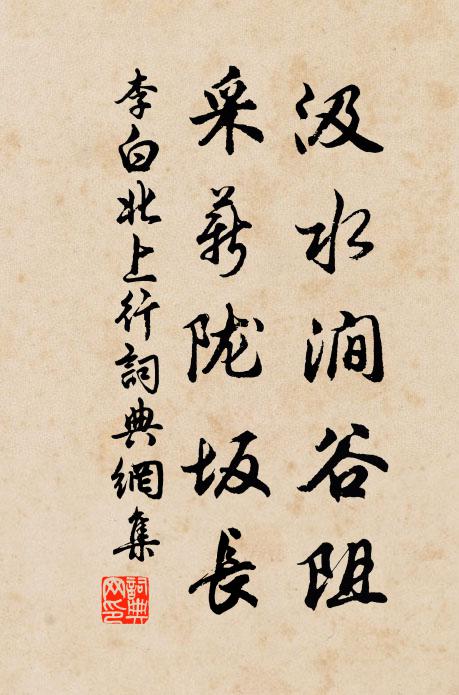 汲水涧谷阻
采薪陇坂長
李白北上行詞典網集
詞典
网印